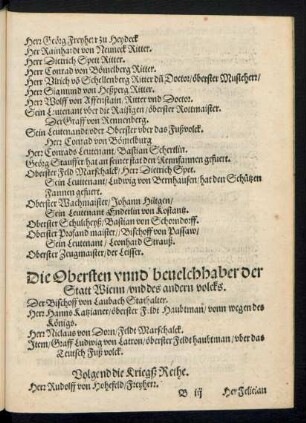 Herr Geörg Freyherr zu Heydeck
Herr Rainhardt von Neuneck Ritter.
Herr Dietrich Spett Ritter.
Herr Conrad von Bömelberg Ritter.
Herr Vlrich võ Schellenberg Ritter vñ Doctor/ öberster Musterherr/
Herr Sigmund von Heßperg Ritter.
Herr Wolff von Affenstain/ Ritter vnd Doctor.
Sein Leutenant vber die Raisigen/ öberster Rottmaister.
Der Graff von Rennenberg.
Sein Leutenandt vnd Oberster vber das Fußvolck.
Herr Conrad von Bömelburg
Herr Conrads Leutenant/ Bastian Scherlin.
Geörg Stauffer hat an seiner stat den Rennfannen gefuert.
Oberster Feld Marschalck/ Herr Dietrich Spet.
Sein Leutenant/ Ludwig von Bernhausen/ hat den Schützen
Fannen gefuert.
Oberster Wachmaister/ Johann Hiltgen/
Sein Leutenant Enderlin von Kostantz.
Oberster Schultheyß/ Bastian von Schorndorff.
Oberster Prosand maister/ Bischoff von Passaw/
Sein Leutenant/ Leonhard Strauß.
Oberster Zeugmaister/ der Leisser.
Die Obersten vnnd beuelchhaber der
Statt Wienn/ vnd des andern volcks.
Der Bischoff von Laubach Stathalter.
Herr Hanns Katzianer/ oberster Feldt Haubtman/ vonn wegen des
Königs.
Herr Niclaus von Dorn/ Feldt Marschalck.
Item/ Graff Ludwig von Latron/ öberster Feldthaubtman/ vber das
Teutsch Fußvolck.
Volgend die Kriegß Reihe.
Herr Rudolff von Hohefeld/ Freyherr.
B iij Her Felician